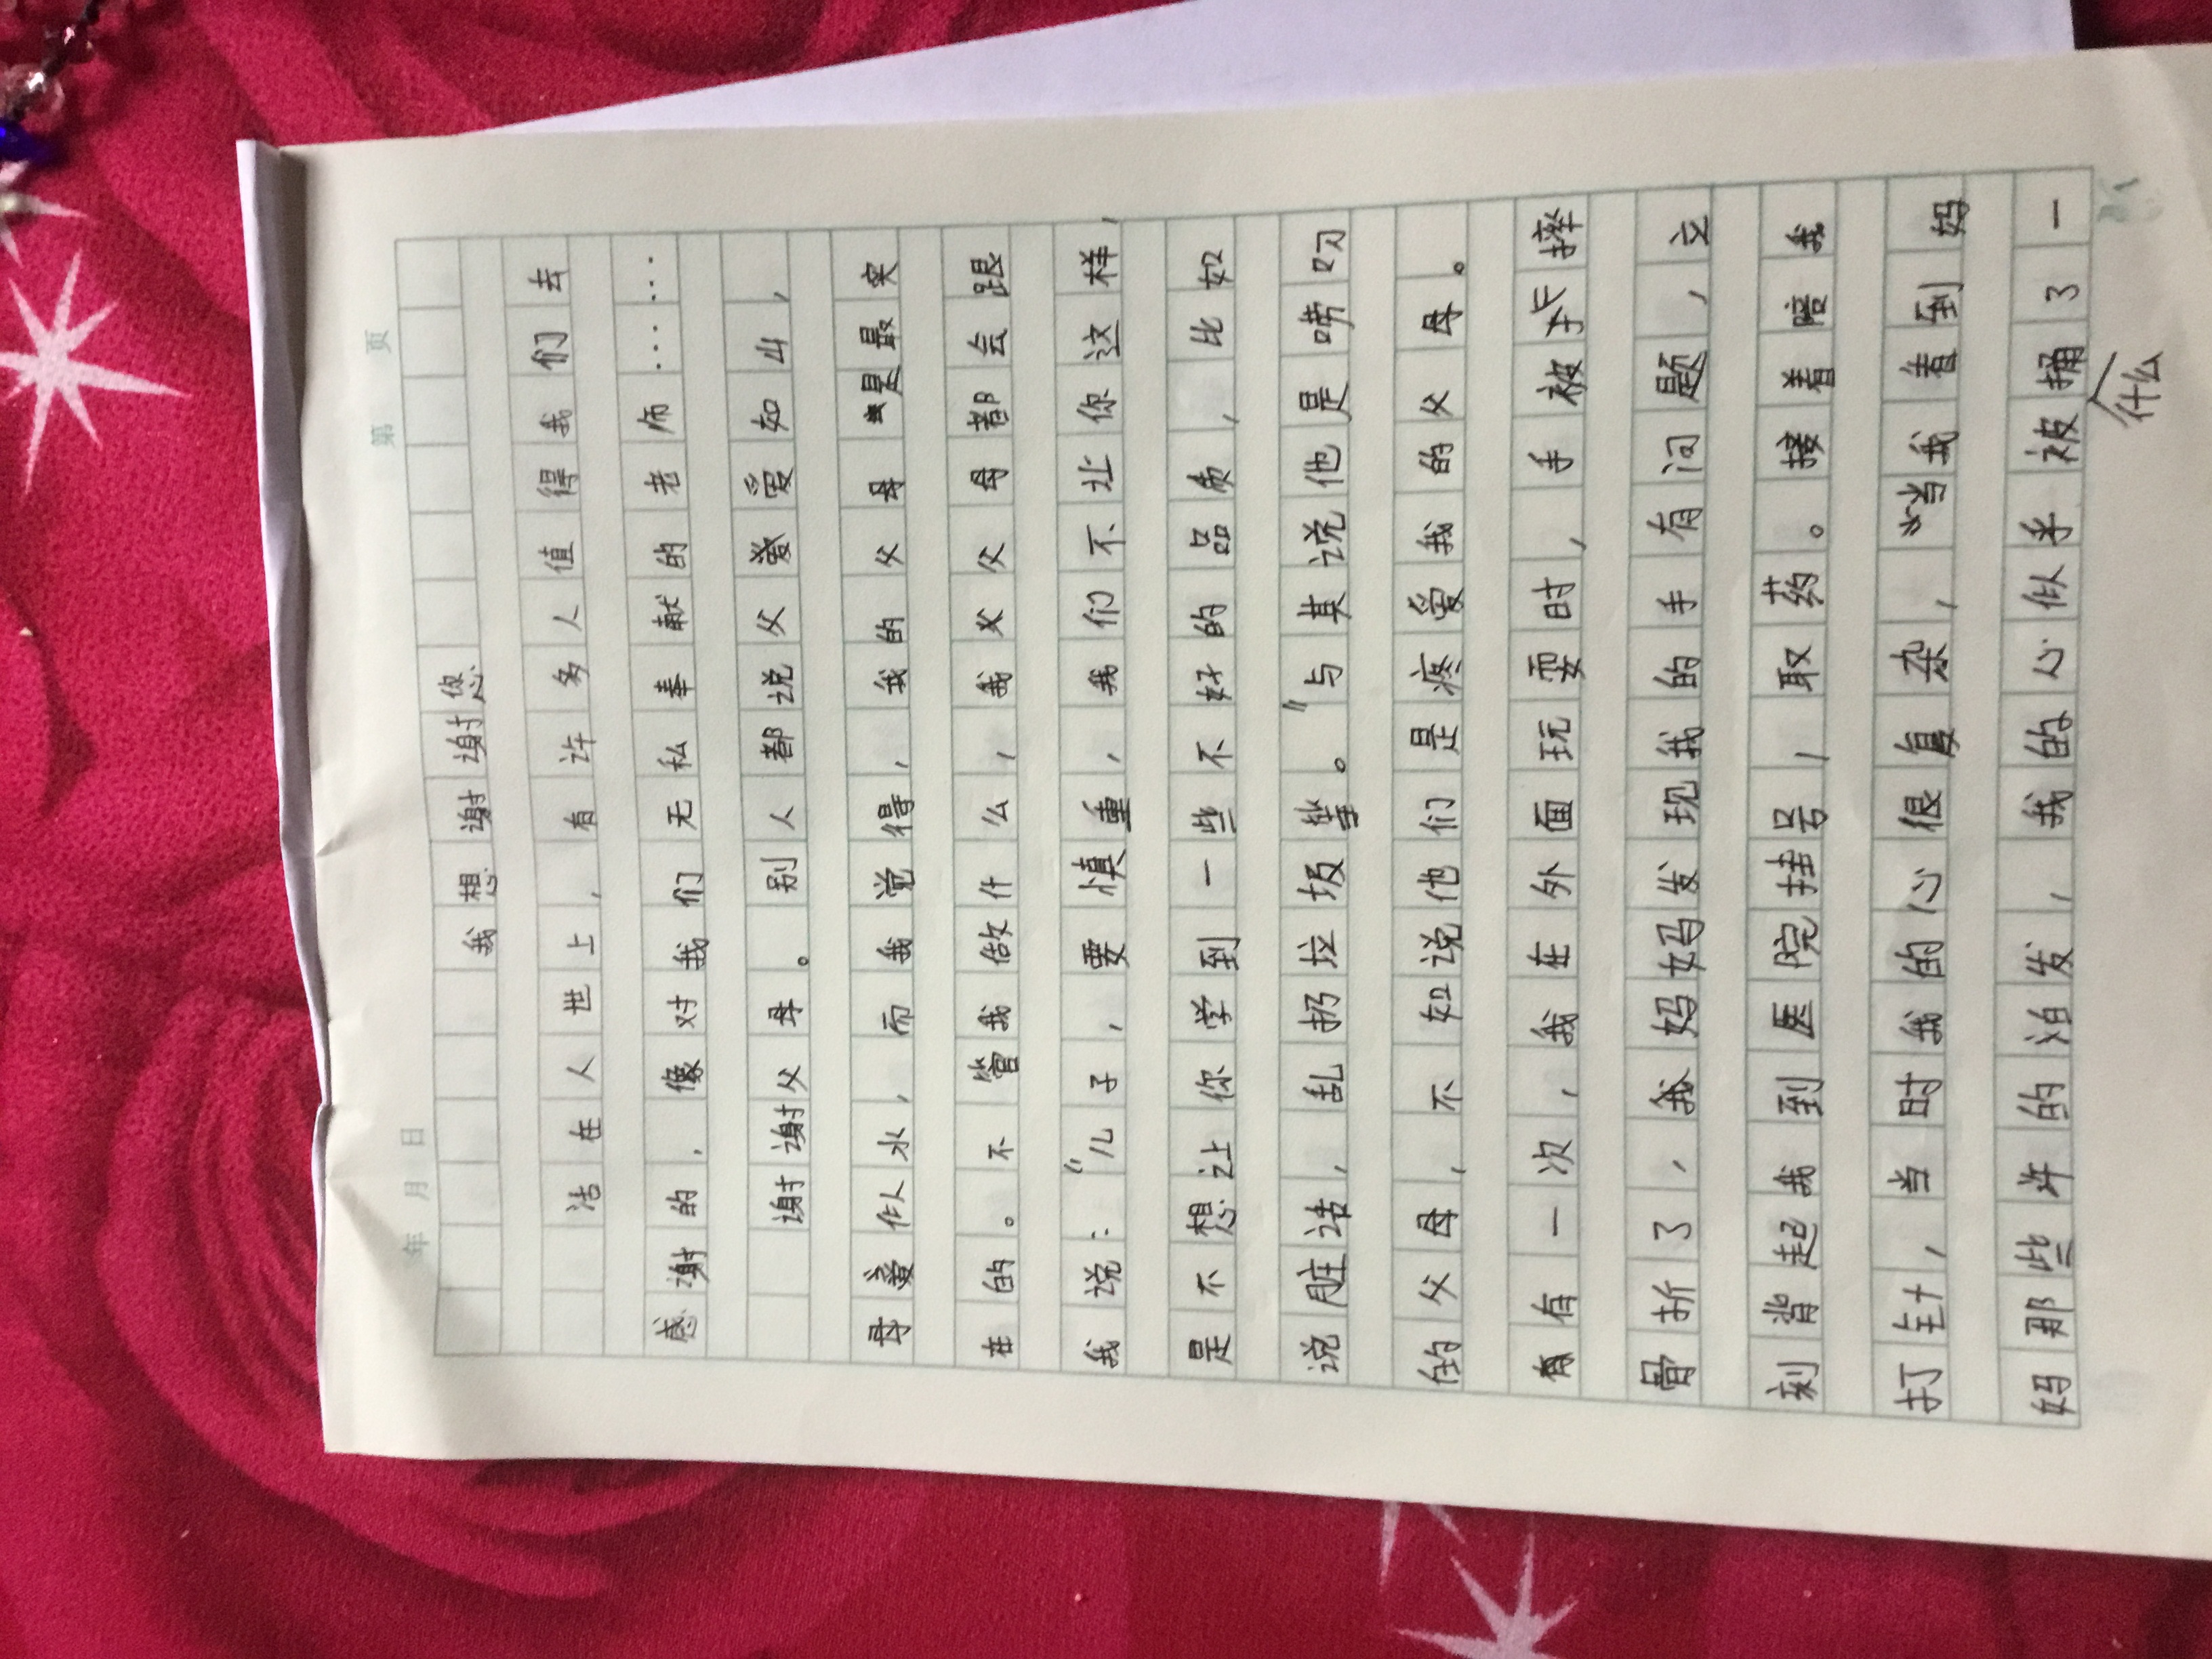 第 页
年 月 日
我想谢谢您
活在人世上，有许多人值得我们去
感谢的，像对我们无私奉献的老师……
谢谢父母。别人都说父爱如山，
母爱似水，而我觉得，我的父母是最实
在的。不管我做什么，我父母都会跟
我说：“儿子，要慎重，我们不让你这样，
是不想让你学到一些不好的品质，比如
说脏话，乱扔垃圾等。”与其说他是唠叨
的父母，不如说他们是疼爱我的父母。
有一次，我在外面玩耍时，手被摔
骨折了，我妈妈发现我的手有问题，立
刻背起我到医院挂号，取药。接着陪我
打针，当时我的心很复杂，当我看到妈
妈那些许的白发，我的心似乎被捅了一
什么